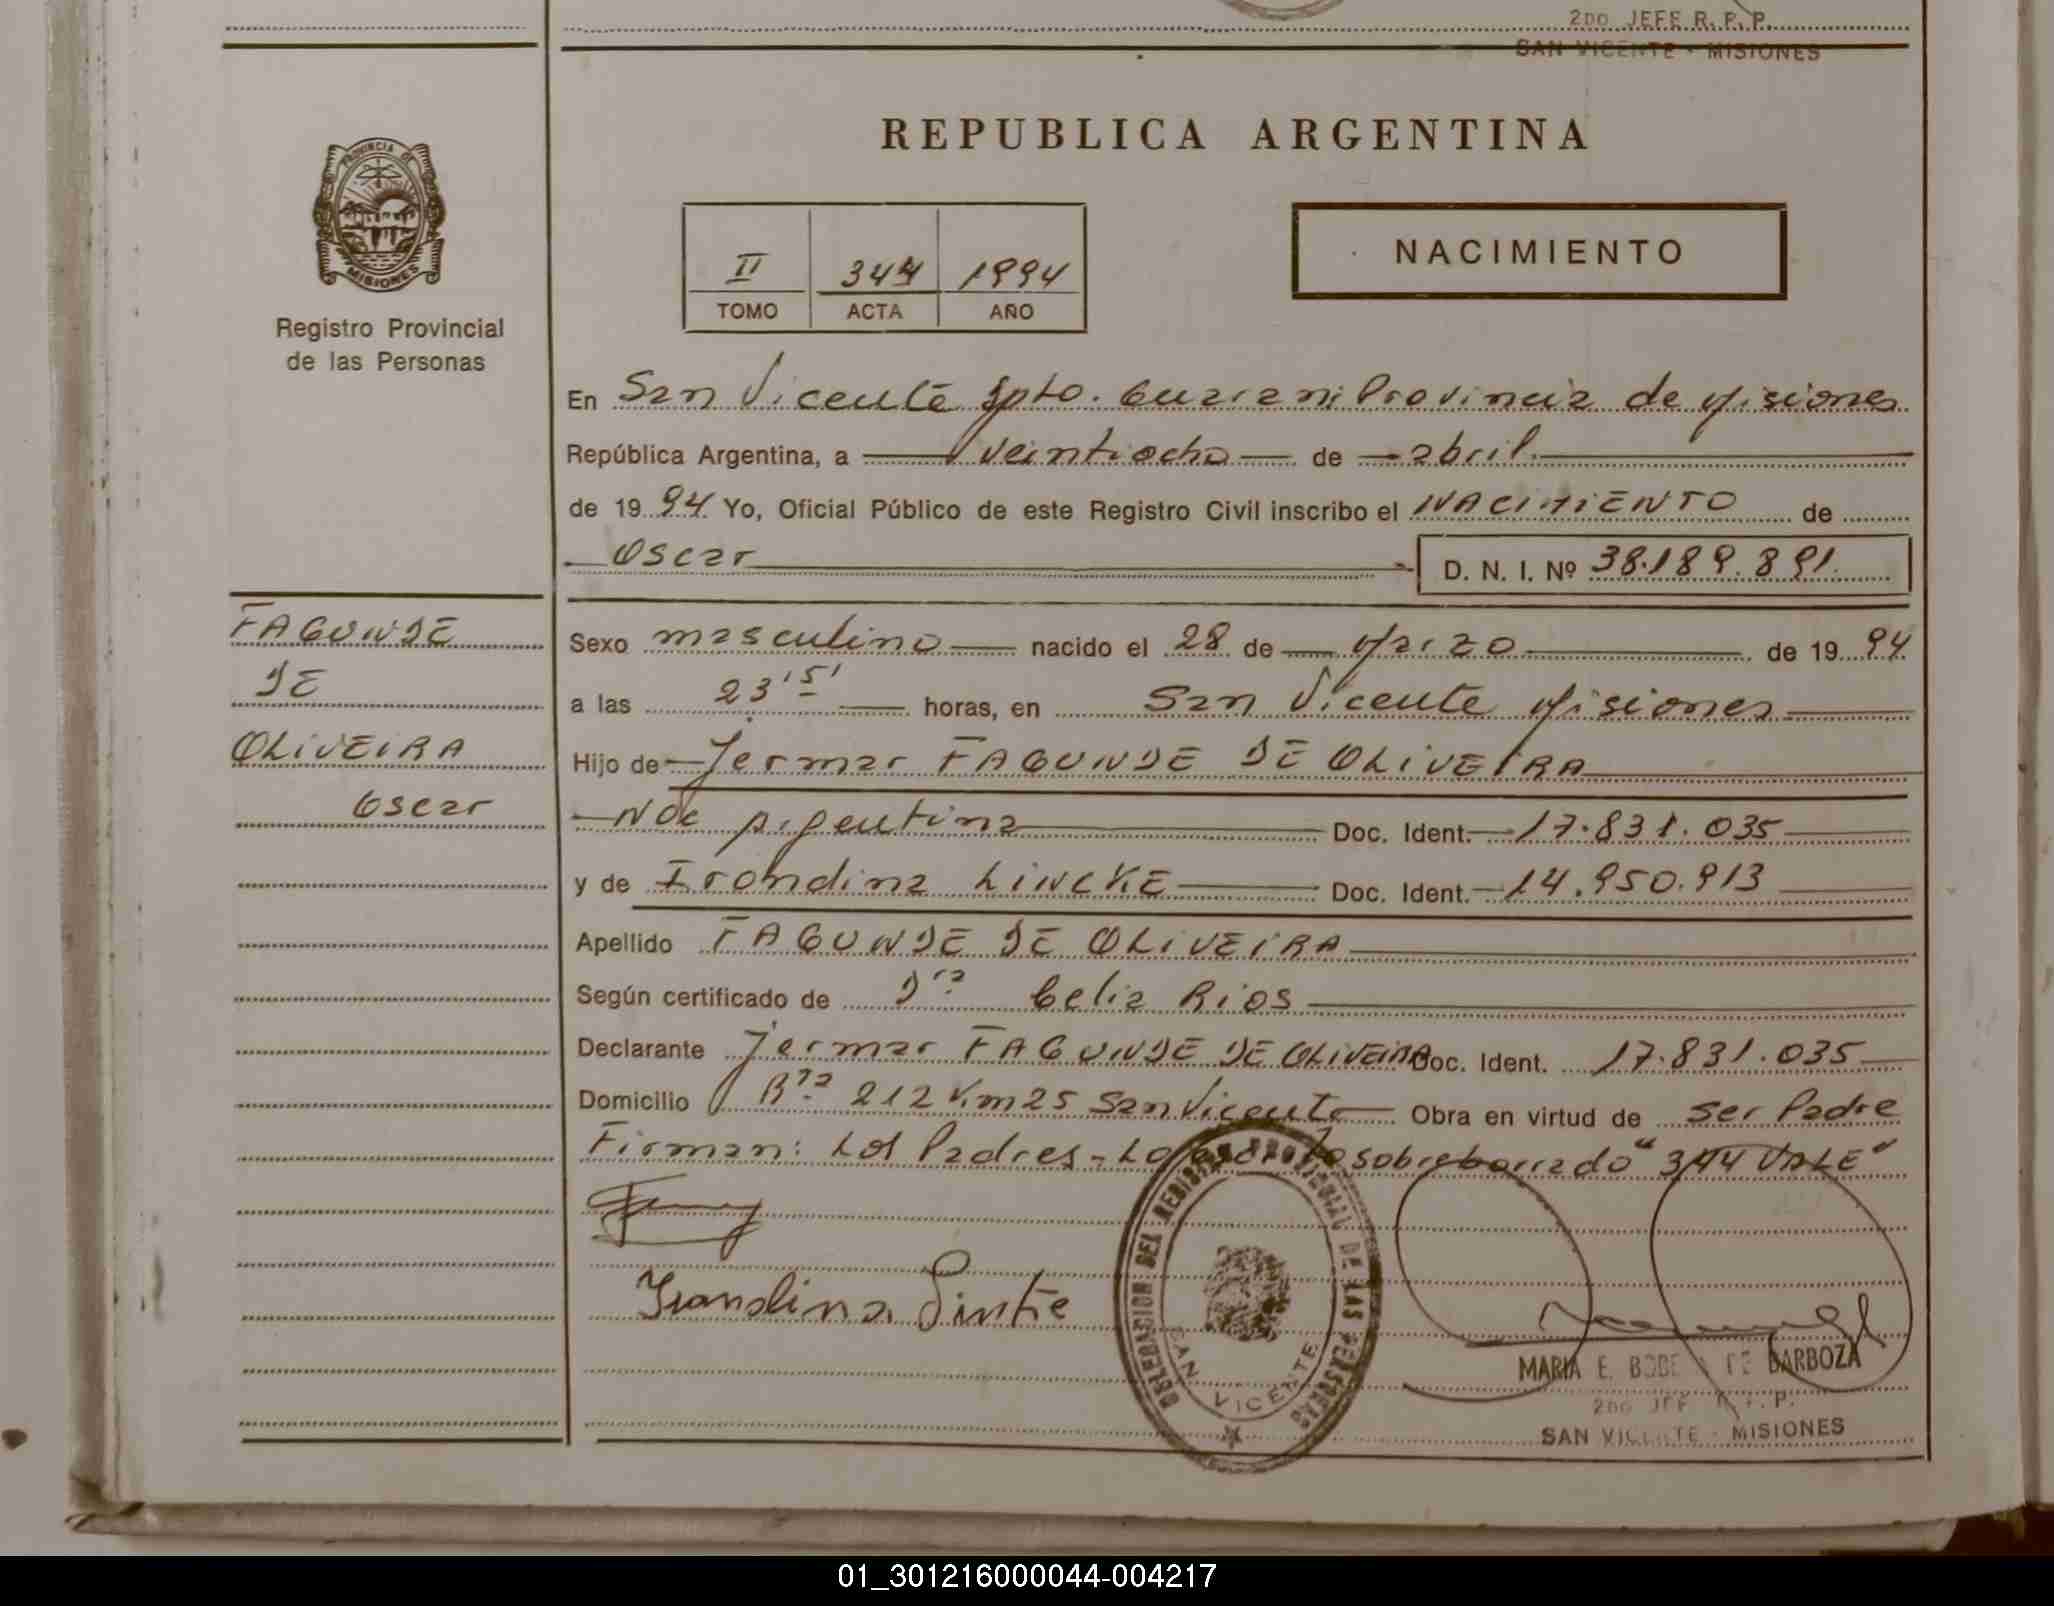 2DO. JEFE R. P. P.
SAN VICENTE - MISIONES
PROVINCIA DE
MISIONES
Registro Provincial
de las Personas
REPUBLICA ARGENTINA
II 344 1994
TOMO ACTA AÑO
NACIMIENTO
En San Vicente Dpto. Guarani Provincia de Misiones
República Argentina, a veintiocho de abril
de 1994 Yo, Oficial Público de este Registro Civil inscribo el NACIMIENTO de
Oscar D. N. I. Nº 38.189.891
FAGUNDE
DE
OLIVEIRA
Oscar
Sexo masculino nacido el 28 de Marzo de 1994
a las 23'5' horas, en San Vicente Misiones
Hijo de Jermar FAGUNDE DE OLIVEIRA
Nac Argentina Doc. Ident. 17.831.035
y de Irondina LINCKE Doc. Ident. 14.950.913
Apellido FAGUNDE DE OLIVEIRA
Según certificado de Dra Celia Rios
Declarante Jermar FAGUNDE DE OLIVEIRA Doc. Ident. 17.831.035
Domicilio Rta 212 Km 25 San Vicente Obra en virtud de ser Padre
Firman: Los Padres - Lo escrito sobreborrado "344 VALE"
DELEGACION DEL REGISTRO PROVINCIAL DE LAS PERSONAS
SAN VICENTE
MARIA E. DE BARBOZA
2do JEFE R. P. P.
SAN VICENTE - MISIONES
01_301216000044-004217